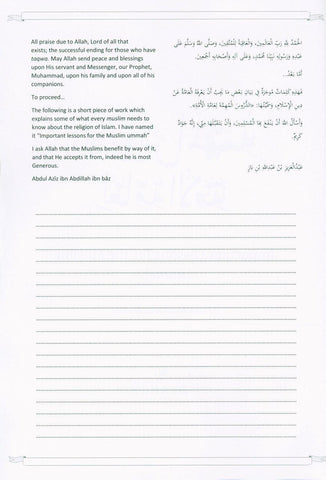 All praise due to Allah, Lord of all that
exists; the successful ending for those who have
taqwa. May Allah send peace and blessings
upon His servant and Messenger, our Prophet,
Muhammad, upon his family and upon all of his
companions.
To proceed…
The following is a short piece of work which
explains some of what every muslim needs to
know about the religion of Islam. I have named
it "Important lessons for the Muslim ummah"
I ask Allah that the Muslims benefit by way of it,
and that He accepts it from, indeed he is most
Generous.
Abdul Azīz ibn Abdillah ibn bāz
الْحَمْدُ لِلَّهِ رَبِّ الْعَالَمِينَ، وَالْعَاقِبَةُ لِلْمُتَّقِينَ، وَصَلَّى اللَّهُ وَسَلَّمَ عَلَى
عَبْدِهِ وَرَسُولِهِ نَبِيِّنَا مُحَمَّدٍ، وَعَلَى آلِهِ وَأَصْحَابِهِ أَجْمَعِينَ.
أَمَّا بَعْدُ...
فَهَذِهِ كَلِمَاتٌ مُوجَزَةٌ فِي بَيَانِ بَعْضِ مَا يَجِبُ أَنْ يَعْرِفَهُ الْعَامَّةُ عَنْ
دِينِ الْإِسْلَامِ، سَمَّيْتُهَا: «الدُّرُوسَ الْمُهِمَّةَ لِعَامَّةِ الْأُمَّةِ».
وَأَسْأَلُ اللَّهَ أَنْ يَنْفَعَ بِهَا الْمُسْلِمِينَ، وَأَنْ يَتَقَبَّلَهَا مِنِّي، إِنَّهُ جَوَادٌ
كَرِيمٌ.
عَبْدُالْعَزِيزِ بْنُ عَبْدِاللَّهِ بْنِ بَازٍ